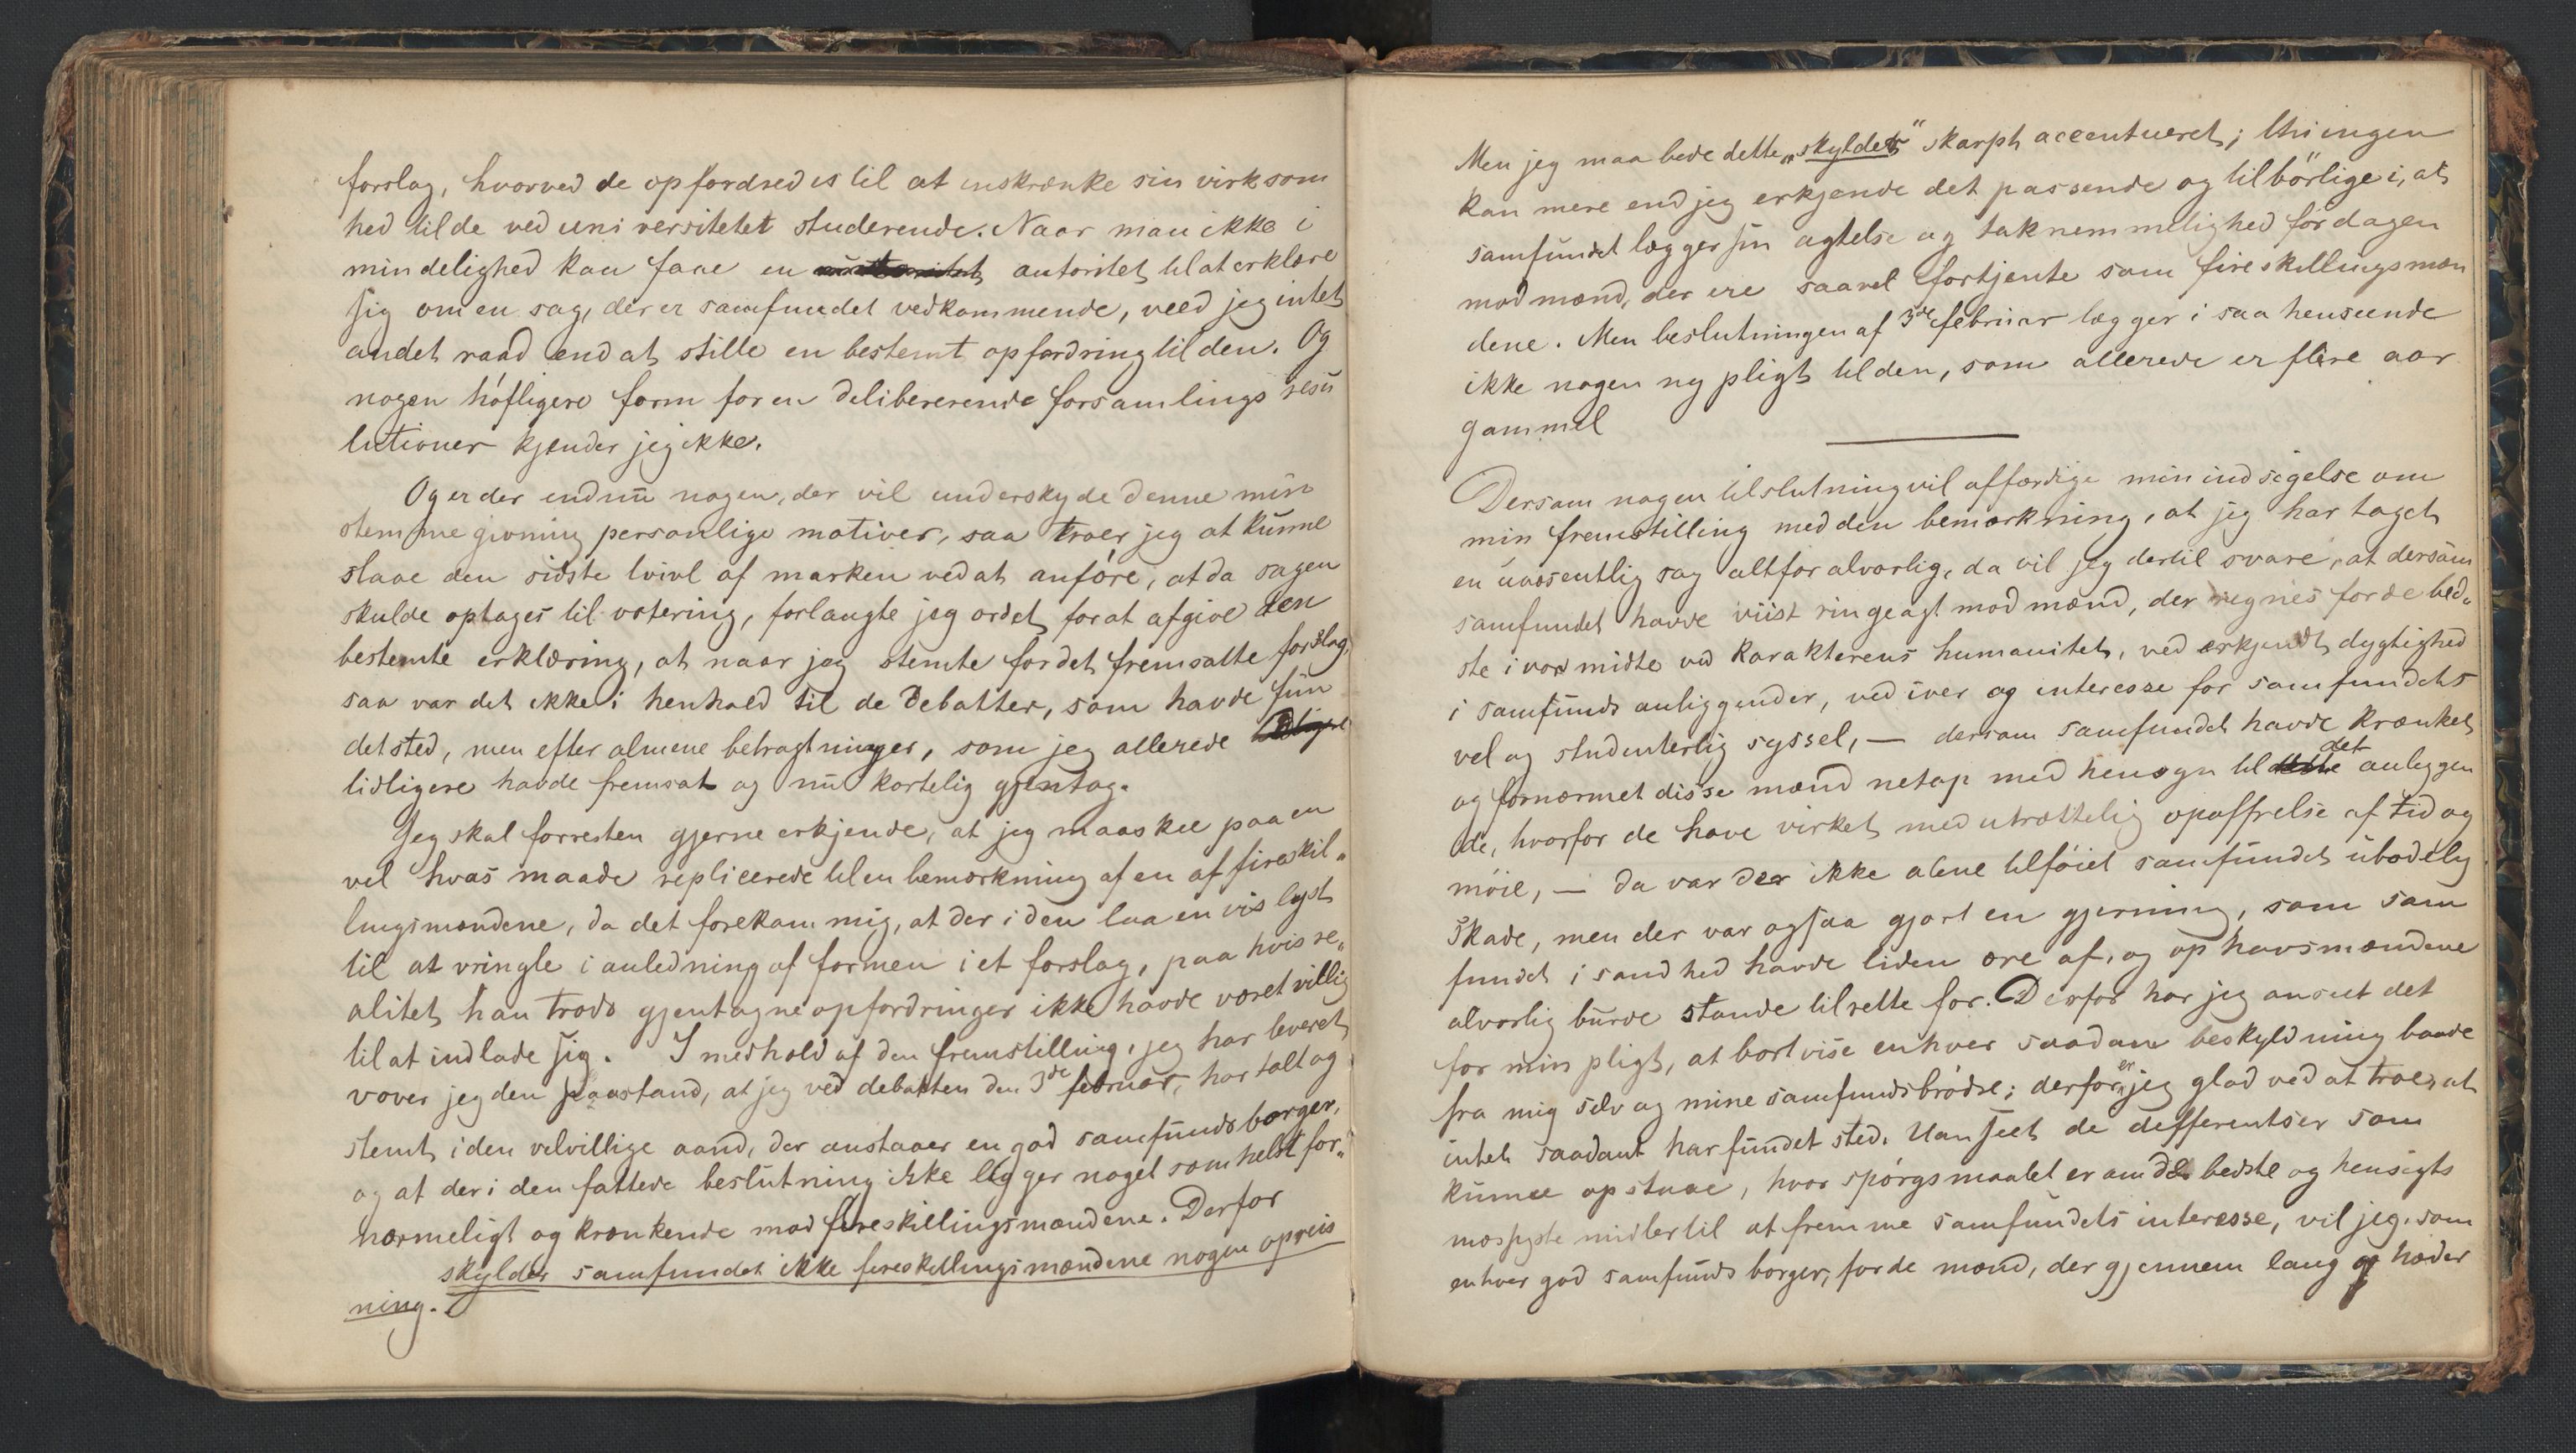 forslag, hvorved de opfordredes til at indskrænke sin virksom
hed til de ved universitetet studerende. Naar man ikke i
mindelighed kan faae en autoritet til at erklære
sig om en sag, der er samfundet vedkommende, veed jeg intet
andet raad end at stille en bestemt opfordring til den. Og
nogen höfligere form for en delibererende forsamlings reso
lutioner kjender jeg ikke.
Og er der endnu nogen, der vil underskyde denne min
stemmegivning personlige motiver, saa troer jeg at kunne
slaae den sidste tvivl af marken ved at anföre, at da sagen
skulde optages til votering, forlangte jeg ordet for at afgive den
bestemte erklæring, at naar jeg stemte for det fremsatte forslag,
saa var det ikke i henhold til de debatter, som havde fun
det sted, men efter almene betragtninger, som jeg allerede
tidligere havde fremsat og nu kortelig gjentog.
Jeg skal forresten gjerne erkjende, at jeg maaskee paa en
vel hvas maade replicerede til en bemærkning af en af fireskil„
lingsmændene, da det forekom mig, at der i den laa en vis lyst
til at vringle i anledning af formen i et forslag, paa hvis re„
alitet han trods gjentagne opfordringer ikke havde været villig
til at indlade sig. I medhold af den fremstilling, jeg har leveret
vover jeg den paastand, at jeg ved debatten den 3de februar, har talt og
stemt i den velvillige aand, der anstaaer en god samfundsborger,
og at der i den fattede beslutning ikke ligger noget somhelst for„
nærmeligt og krænkende mod fireskillingsmændene. Derfor
skylder samfundet ikke fireskillingsmændene nogen opreis
ning.
Men jeg maa bede dette „skylder“ skarpt accentueret; thi ingen
kan mere end jeg erkjende det passende og tilbörlige i, at
samfundet lægger sin agtelse og taknemmelighed for dagen
mod mænd, der ere saavel fortjente som fireskillingsmæn
dene. Men beslutningen af 3de februar lægger i saa henseende
ikke nogen ny pligt til den, som allerede er flere aar
gammel
Dersom nogen tilslutning vil affærdige min indsigelse om
min fremstilling med den bemærkning, at jeg har taget
en uvæsentlig sag altfor alvorlig, da vil jeg dertil svare, at dersom
samfundet havde viist ringeagt mod mænd, der regnes for de bed„
ste i vor midte ved karakterens humanitet, ved erkjendt dygtighed
i samfunds anliggender, ved iver og interesse for samfundets
vel og studenterlig syssel, — dersom samfundet havde krænket
og fornærmet disse mænd netop med hensyn til det anliggen
de, hvorfor de have virket med utrættelig opoffrelse af tid og
möie, — da var der ikke alene tilföiet samfundet ubodelig
skade, men der var ogsaa gjort en gjerning, som sam
fundet i sandhed havde liden ære af, og ophavsmændene
alvorlig burde stande tilrette for. Derfor har jeg anseet det
for min pligt, at bortvise enhver saadan beskyldning baade
fra mig selv og mine samfundsbrödre; derfor er jeg glad ved at troe, at
intet saadant har fundet sted. Uanseet de differentser som
kunne opstaae, hvor spörgsmaalet er om de bedste og hensigts
mæssigste midler til at fremme samfundets interesse, vil jeg, som
enhver god samfunds borger, for de mænd, der gjennem lang og hæder